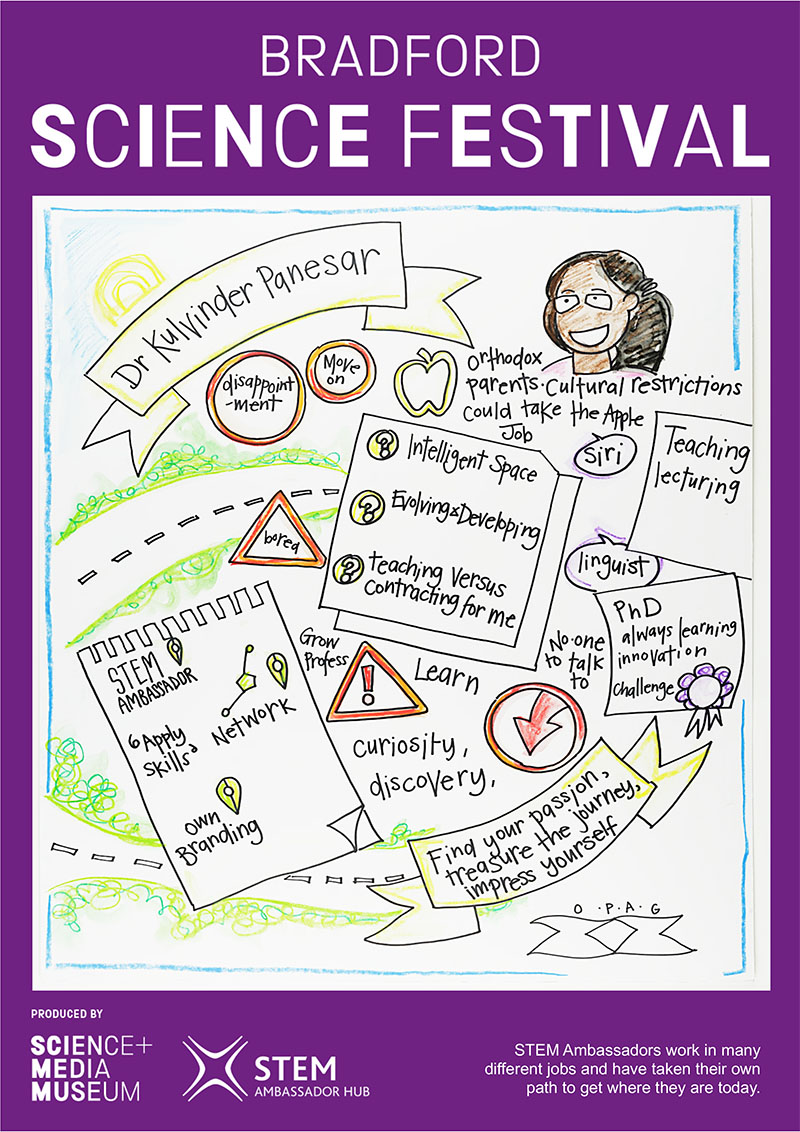 BRADFORD
SCIENCE FESTIVAL
Dr Kulvinder Panesar
disappoint
-ment
Move
on
Orthodox
parents. Cultural restrictions
Could take the Apple
Job
Siri
Teaching
lecturing
Intelligent Space
Evolving x Developing
Teaching Versus
Contracting for me
bored
linguist
PhD
always learning
innovation
challenge
No.one
to talk
to
STEM
AMBASSADOR
Network
6 Apply
Skills
Own
Branding
Grow
Profess
!
Learn
curiosity,
discovery,
Find your passion,
treasure the journey,
impress yourself
O . P . A . G
PRODUCED BY
SCIENCE+
MEDIA
MUSEUM
STEM
AMBASSADOR HUB
STEM Ambassadors work in many
different jobs and have taken their own
path to get where they are today.